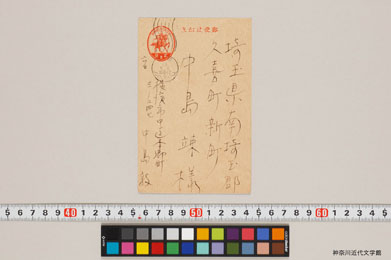 郵便はがき
埼玉県南埼玉郡
久喜町新町
中島 様
横浜市中区本郷町
中島 敦
5 6 7 8 9 40 1 2 3 4 5 6 7 8 9 50 1 2 3 4 5 6 7 8 9 60 1 2 3 4 5
神奈川近代文学館